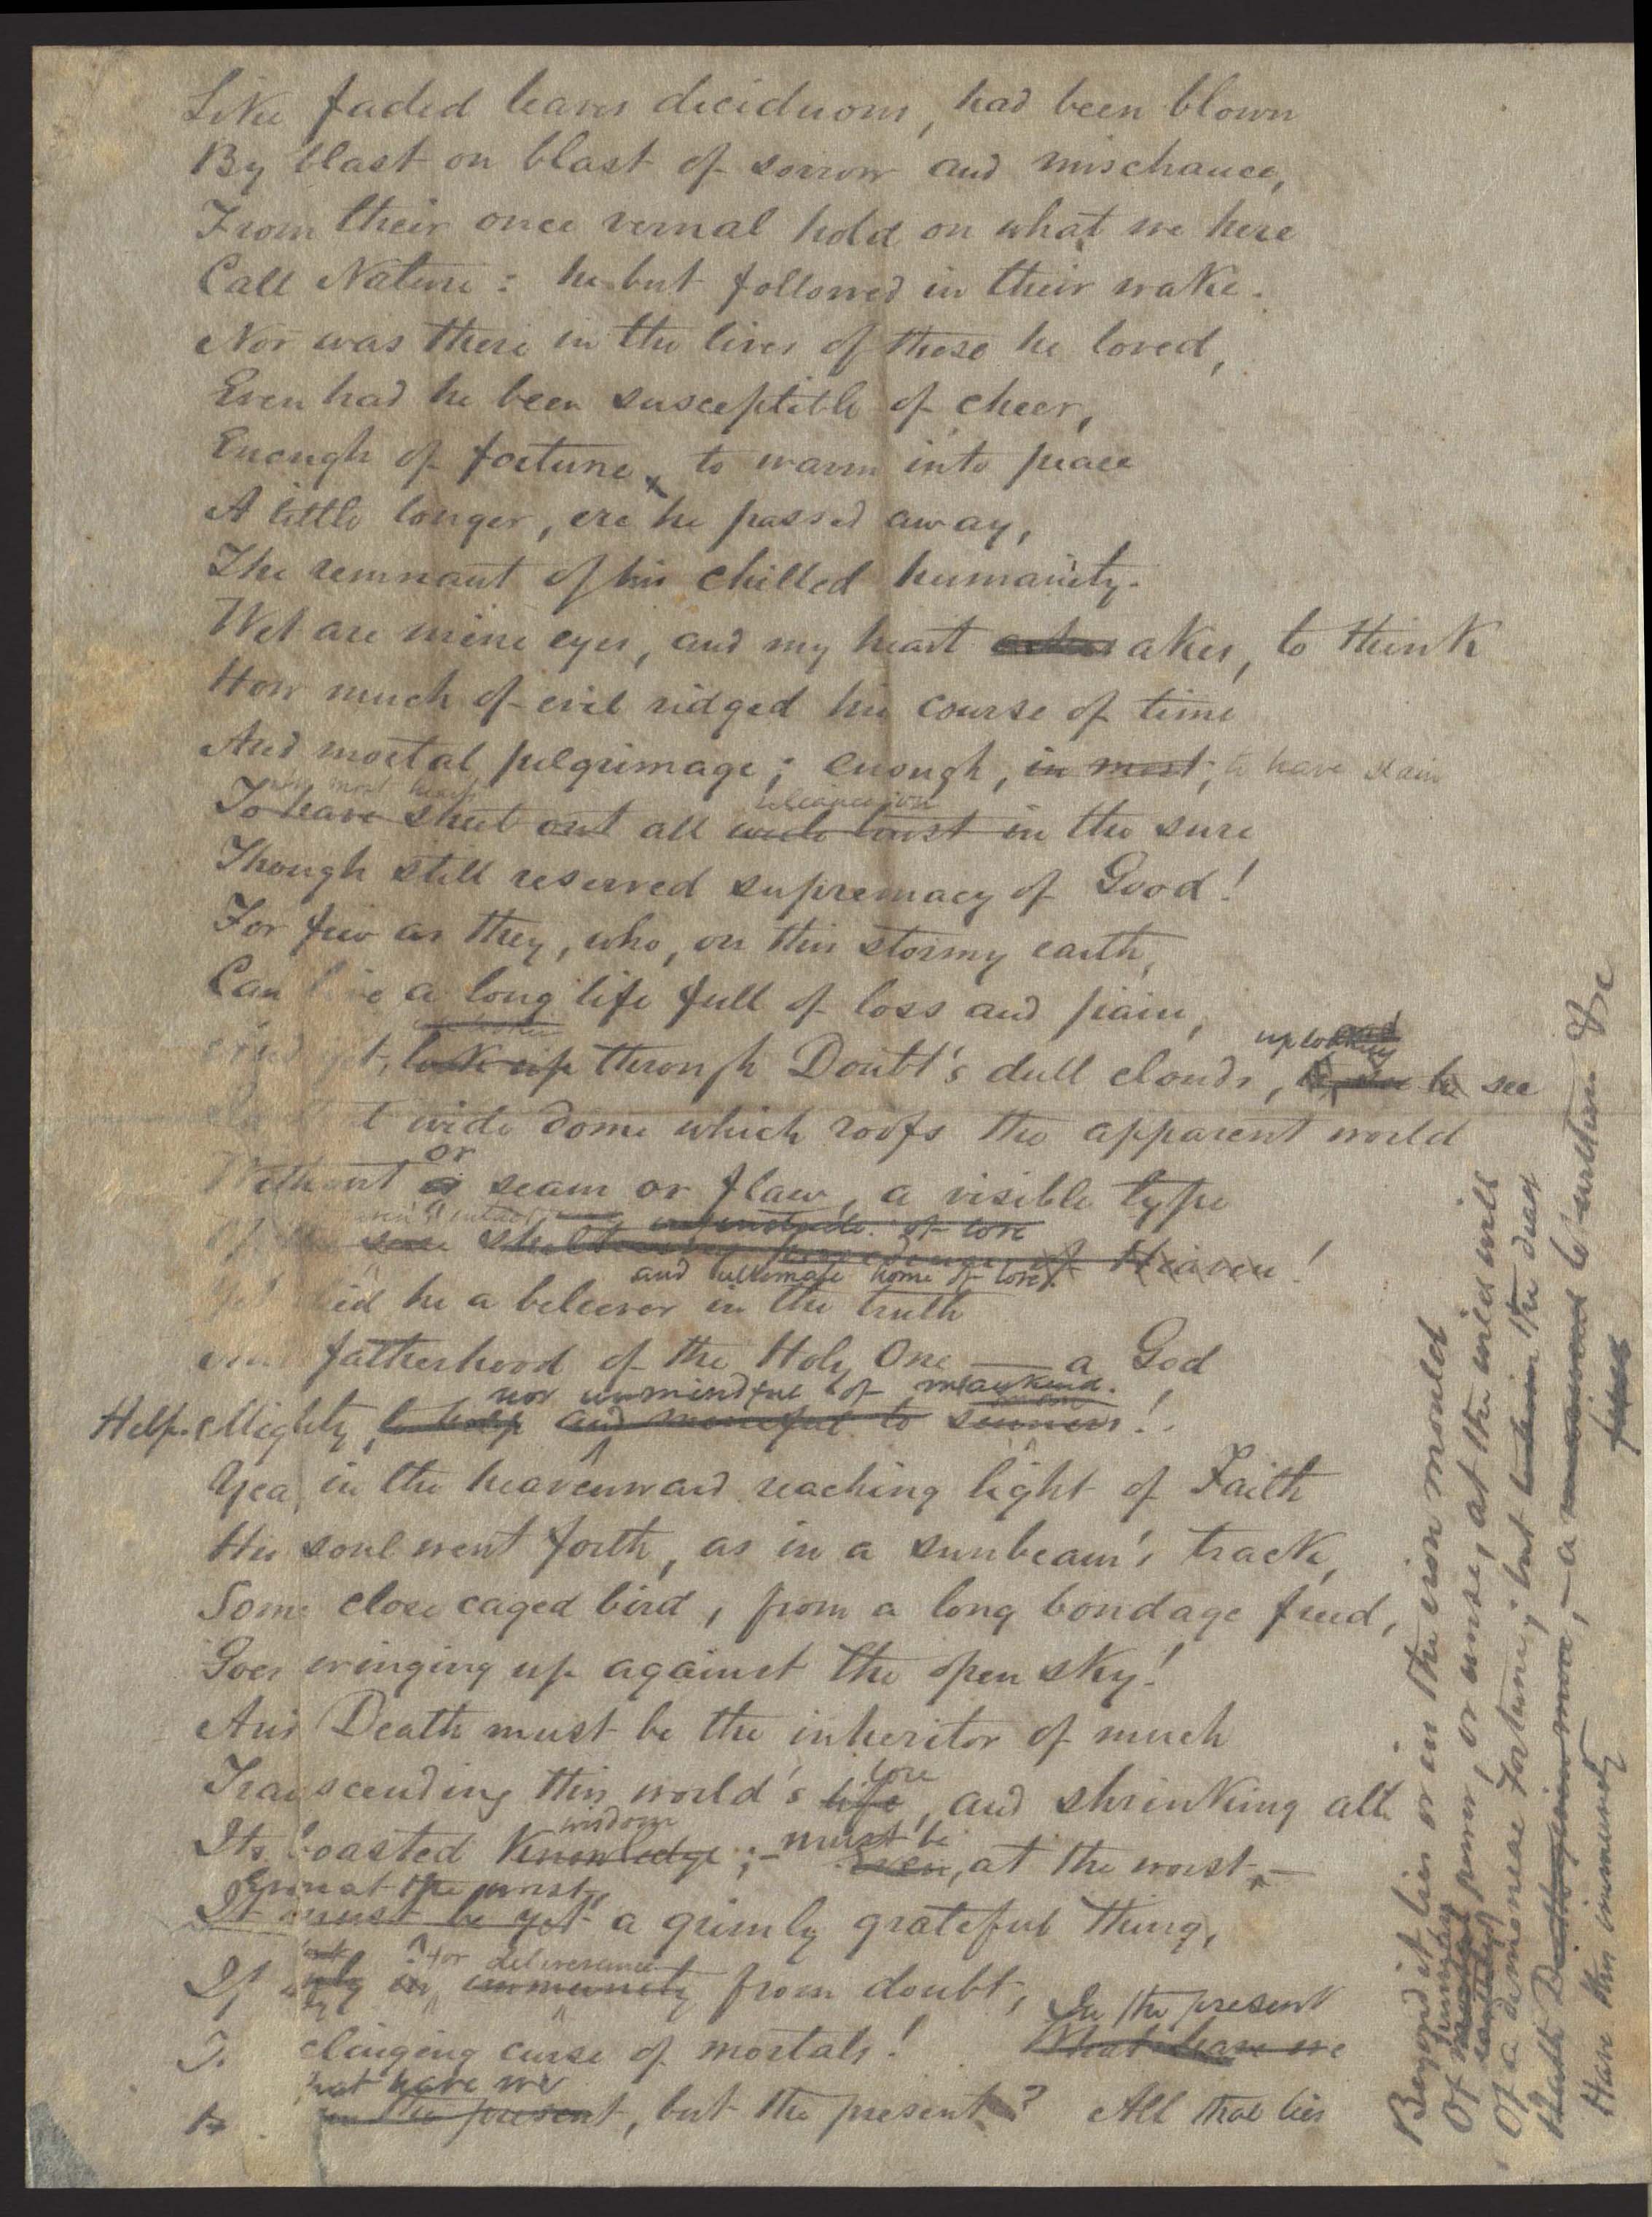 Like faded leaves deciduous, had been blown
By blast on blast of sorrow and mischance,
From their once vernal hold on what we here
Call Nature: he but followed in their wake.
Nor was there in the lives of those he loved,
Even had he been susceptible of cheer,
Enough of fortune, to warm into peace
A little longer, ere he passed away,
The remnant of his chilled humanity.
Wet are mine eyes, and my heart akes, to think
How much of evil ridged his course of time
And mortal pilgrimage; enough, in most, to have slain
in most hearts reliance on
To leave shut out all trust in the sure
Though still reserved supremacy of Good!
For few are they, who, on this stormy earth,
Can live a long life full of loss and pain,
uplooking
And yet, look up through Doubt's dull clouds, to see
t wide dome which roofs the apparent world
or
Without a seam or flaw, a visible type
infinitude of love
Of of Heaven!
and ultimate home of love
Yet died he a believer in the truth
And fatherhood of the Holy One — a God
nor unmindful of mankind.
Help-Mighty to help and merciful to sinners!
Yea, in the heavenward reaching light of Faith
His soul went forth, as in a sunbeam's track,
Some close caged bird, from a long bondage freed,
Goes winging up against the open sky!
And Death must be the inheritor of much
lore
Transcending this world's life, and shrinking all
wisdom must be
Its boasted Knowledge;– Even, at the worst,–
Even at the worst,
It must be yet a grimly grateful thing,
for deliverance
If only in immunity from doubt,
In the present
clinging curse of mortals! What have we
What have we
in the present, but the present? All that lies
Beyond it lies or in the iron mould
Of human power, or unrise, at the wild will
earthly
Of a demoniac Fortune; but the dead
Hath Death given more,– a measured to
Have this immunity